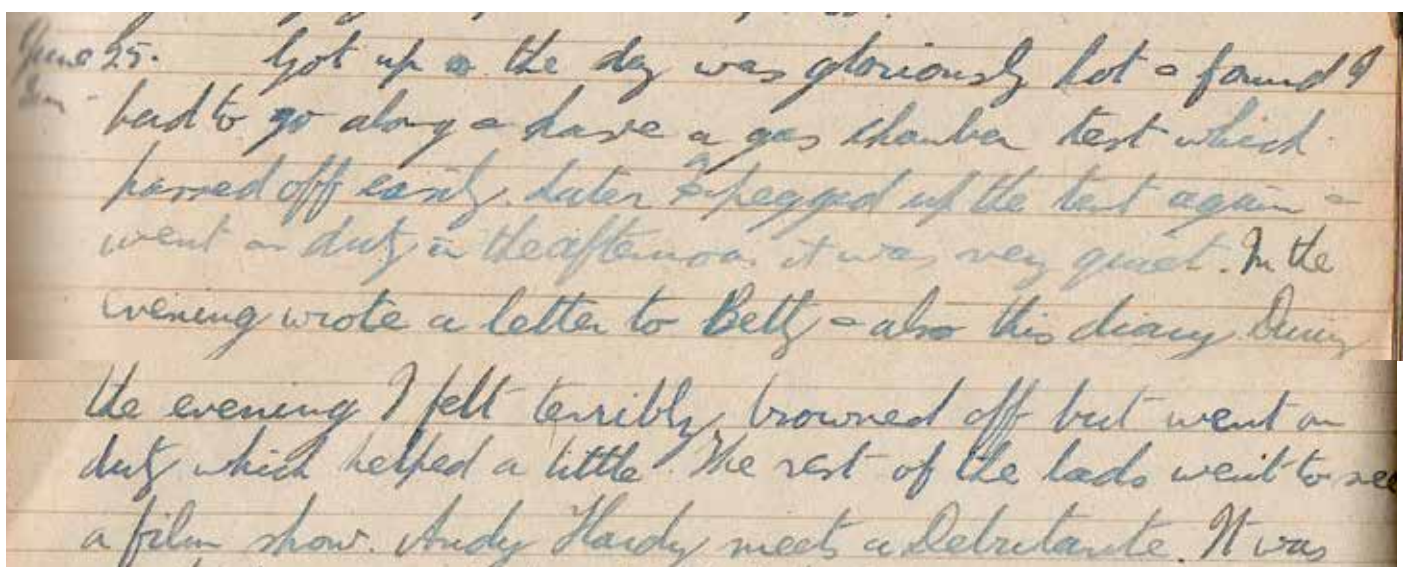 June 25. Got up & the day was gloriously hot & found I
Sun - had to go along & have a gas chamber test which
passed off easily. Later I pegged up the tent again &
went on duty in the afternoon it was very quiet. In the
evening wrote a letter to Betty & also this diary. During
the evening I felt terribly browned off but went on
duty which helped a little. The rest of the lads went to see
a film show. Andy Hardy meets a Debutante. It was